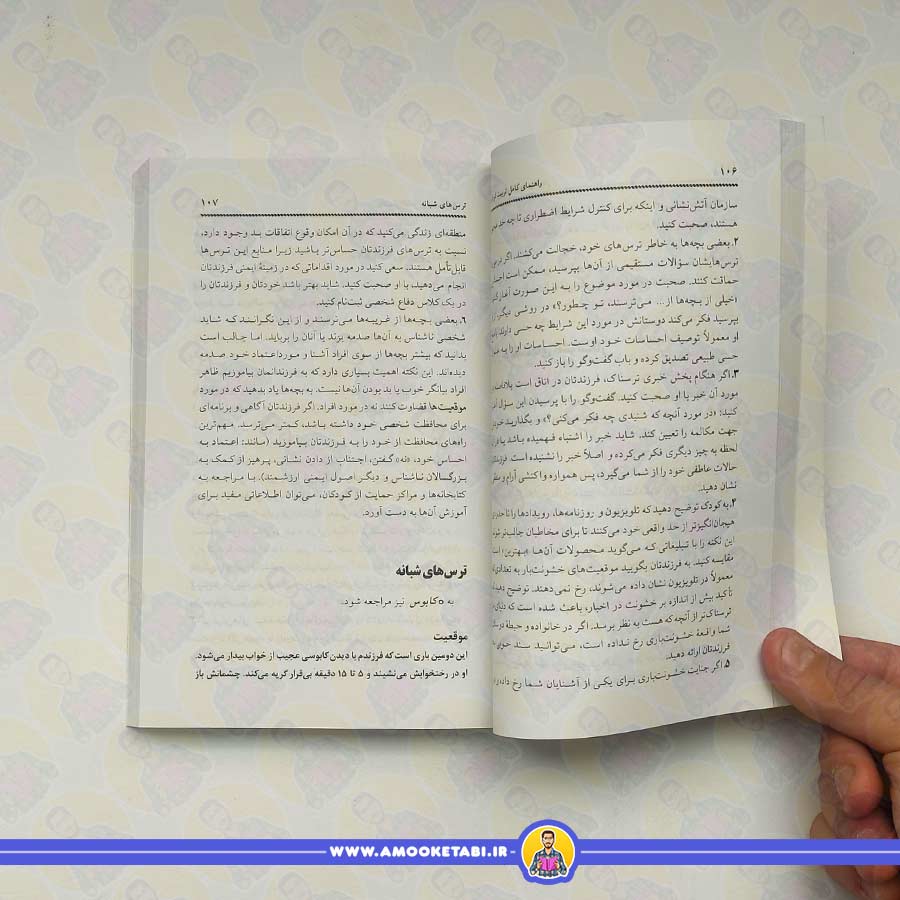 ۱۰۶
راهنمای کامل تربیت
سازمان آتش‌نشانی و اینکه برای کنترل شرایط اضطراری تا چه حد
هستند، صحبت کنید.
۲.بعضی بچه‌ها به خاطر ترس‌های خود، خجالت می‌کشند. اگر
ترس‌هایشان سؤالات مستقیمی از آن‌ها بپرسید، ممکن است
حماقت کنند. صحبت در مورد موضوع را به این صورت آغاز
«خیلی از بچه‌ها از... می‌ترسند، تو چطور؟» در روشی دیگر
بپرسید فکر می‌کند دوستانش در مورد این شرایط چه حسی دارند.
او معمولاً توصیف احساسات خود اوست. احساسات او را به
حسی طبیعی تصدیق کرده و باب گفت‌وگو را باز کنید.
۳.اگر هنگام پخش خبری ترسناک، فرزندتان در اتاق است
مورد آن خبر با او صحبت کنید. گفت‌وگو را با پرسیدن این سؤال
کنید: «در مورد آنچه که شنیدی چه فکر می‌کنی؟» و بگذارید
جهت مکالمه را تعیین کند. شاید خبر را اشتباه فهمیده باشد یا
لحظه به چیز دیگری فکر می‌کرده و اصلاً خبر را نشنیده است.
حالات عاطفی خود را از شما می‌گیرد، پس همواره واکنشی آرام و
نشان دهید.
۴.به کودک توضیح دهید که تلویزیون و روزنامه‌ها، رویدادها را تا
هیجان‌انگیزتر از حد واقعی خود می‌کنند تا برای مخاطبان جالب‌تر
این نکته را با تبلیغاتی که می‌گوید محصولات آن‌ها «بهترین»
مقایسه کنید. به فرزندتان بگویید موقعیت‌های خشونت‌بار به
معمولاً در تلویزیون نشان داده می‌شوند، رخ نمی‌دهند. توضیح
تأکید بیش از اندازه بر خشونت در اخبار، باعث شده است که
ترسناک‌تر از آنچه که هست به نظر برسد. اگر در خانواده و حیطهٔ
شما واقعهٔ خشونت‌باری رخ نداده است، می‌توانید سند خوبی
فرزندتان ارائه دهید.
۵.اگر جنایت خشونت‌باری برای یکی از آشنایان شما رخ داده
۱۰۷
ترس‌های شبانه
منطقه‌ای زندگی می‌کنید که در آن امکان وقوع اتفاقات بد وجود دارد،
نسبت به ترس‌های فرزندتان حساس‌تر باشید زیرا منابع این ترس‌ها
قابل‌تأمل هستند. سعی کنید در مورد اقداماتی که در زمینهٔ ایمنی فرزندتان
انجام می‌دهید، با او صحبت کنید. شاید بهتر باشد خودتان و فرزندتان را
در یک کلاس دفاع شخصی ثبت‌نام کنید.
۶.بعضی بچه‌ها از غریبه‌ها می‌ترسند و از این نگرانند که شاید
شخصی ناشناس به آن‌ها صدمه بزند یا آنان را برباید. اما جالب است
بدانید که بیشتر بچه‌ها از سوی افراد آشنا و مورداعتماد خود صدمه
دیده‌اند. این نکته اهمیت بسیاری دارد که به فرزندانمان بیاموزیم ظاهر
افراد بیانگر خوب یا بد بودن آن‌ها نیست. به بچه‌ها یاد بدهید که در مورد
موقعیت‌ها قضاوت کنند نه در مورد افراد. اگر فرزندتان آگاهی و برنامه‌ای
برای محافظت شخصی خود داشته باشد، کمتر می‌ترسد. مهم‌ترین
راه‌های محافظت از خود را به فرزندتان بیاموزید (مانند: اعتماد به
احساس خود، «نه» گفتن، اجتناب از دادن نشانی، پرهیز از کمک به
بزرگسالان ناشناس و دیگر اصول ایمنی ارزشمند). با مراجعه به
کتابخانه‌ها و مراکز حمایت از کودکان، می‌توان اطلاعاتی مفید برای
آموزش آن‌ها به دست آورد.
ترس‌های شبانه
به ○کابوس نیز مراجعه شود.
موقعیت
این دومین باری است که فرزندم با دیدن کابوسی عجیب از خواب بیدار می‌شود.
او در رختخوابش می‌نشیند و ۵ تا ۱۵ دقیقه بی‌قرار گریه می‌کند. چشمانش باز
WWW.AMOOKETABI.IR